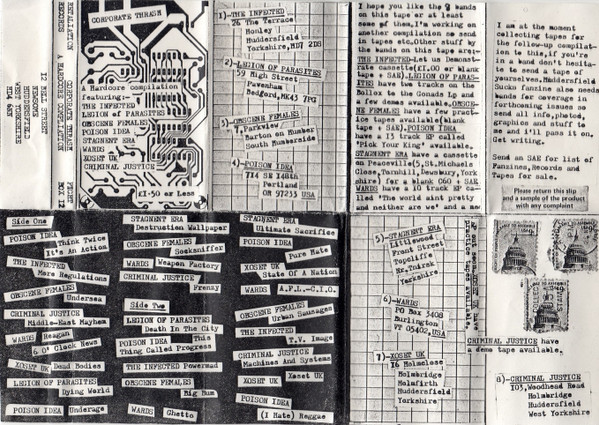 RETALIATION RECORDS
CORPORATE THRASH
A HARDCORE COMPILATION
12 BELL STREET
NEWSOME
HUDDERSFIELD
WEST YORKSHIRE
HD4 6NN
CORPORATE THRASH
A Hardcore compilation
featuring—
THE INFECTED
LEGION of PARASITES
OBSCENE FEMALES
POISON IDEA
STAGNENT ERA
WARDS
XOSET UK
CRIMINAL JUSTICE
£1-50 or Less
1)-THE INFECTED
26 The Terrace
Honley
Huddersfield
Yorkshire,HD7 2DS
2)-LEGION OF PARASITES
59 High Street
Pavenham
Bedford,MK43 7PG
3)-OBSCENE FEMALES
7,Parkview
Barton on Humber
South Humberside
4)-POISON IDEA
714 SE 148th
Portland
OR 97233 USA
I hope you like the 8 bands
on this tape or at least
some of them,I'm working on
another compilation so send
in tapes etc.Other stuff by
the bands on this tape are:-
THE INFECTED-Let us Demonst-
rate cassette(£1.00 or blank
tape + SAE).LEGION OF PARAS-
ITES have two tracks on the
Bollox to the Gonads Lp and
a few demos available.OBSCE-
NE FEMALES have a few pract-
ice tapes available(blank
tape + SAE).POISON IDEA
have a 13 track EP called
'Pick Your King' available.
STAGNENT ERA have a cassette
on Peaceville(5,St.Michaels
Close,Tarnhill,Dewsbury,York
shire) for a blank C60 + SAE
WARDS have a 10 track EP ca-
lled 'The world aint pretty
and neither are we' and a
I am at the moment
collecting tapes for
the follow-up compilat-
ion to this,if you're
in a band don't hesita-
te to send a tape of
yourselves.Huddersfield
Sucks fanzine also needs
bands for coverage in
forthcoming issues so
send all info,photos,
graphics and stuff to
me and i'll pass it on.
Get writing.
Send an SAE for list of
Fanzines,Records and
Tapes for sale.
Please return this slip
and a sample of the product
with any complaint
Side One
POISON IDEA Think Twice
It's An Action
THE INFECTED
More Regulations
OBSCENE FEMALES
Undersea
CRIMINAL JUSTICE
Middle-East Mayhem
WARDS Reagan
6 O' Clock News
XOSET UK Dead Bodies
LEGION OF PARASITES
Dying World
POISON IDEA Underage
STAGNENT ERA
Destruction Wallpaper
OBSCENE FEMALES
Socksniffer
WARDS Weapon Factory
CRIMINAL JUSTICE
Frenzy
Side Two
LEGION OF PARASITES
Death In The City
POISON IDEA This
Thing Called Progress
THE INFECTED Powermad
OBSCENE FEMALES
Big Bum
WARDS Ghetto
STAGNENT ERA
Ultimate Sacrifice
POISON IDEA
Pure Hate
XOSET UK
State Of A Nation
WARDS A.F.L.-C.I.O.
OBSCENE FEMALES
Urban Sausages
THE INFECTED
T.V. Image
CRIMINAL JUSTICE
Machines And Systems
XOSET UK Xoset UK
POISON IDEA
(I Hate) Reggae
5)-STAGNENT ERA
Front Street
Topcliffe
Nr,Thirsk
Yorkshire
6)-WARDS
PO Box 5408
Burlington
VT 05402,USA
7)-XOSET UK
16 Holmclose
Holmbridge
Holmfirth
Huddersfield
Yorkshire
CRIMINAL JUSTICE have
a demo tape available.
8)-CRIMINAL JUSTICE
103,Woodhead Road
Holmbridge
Huddersfield
West Yorkshire